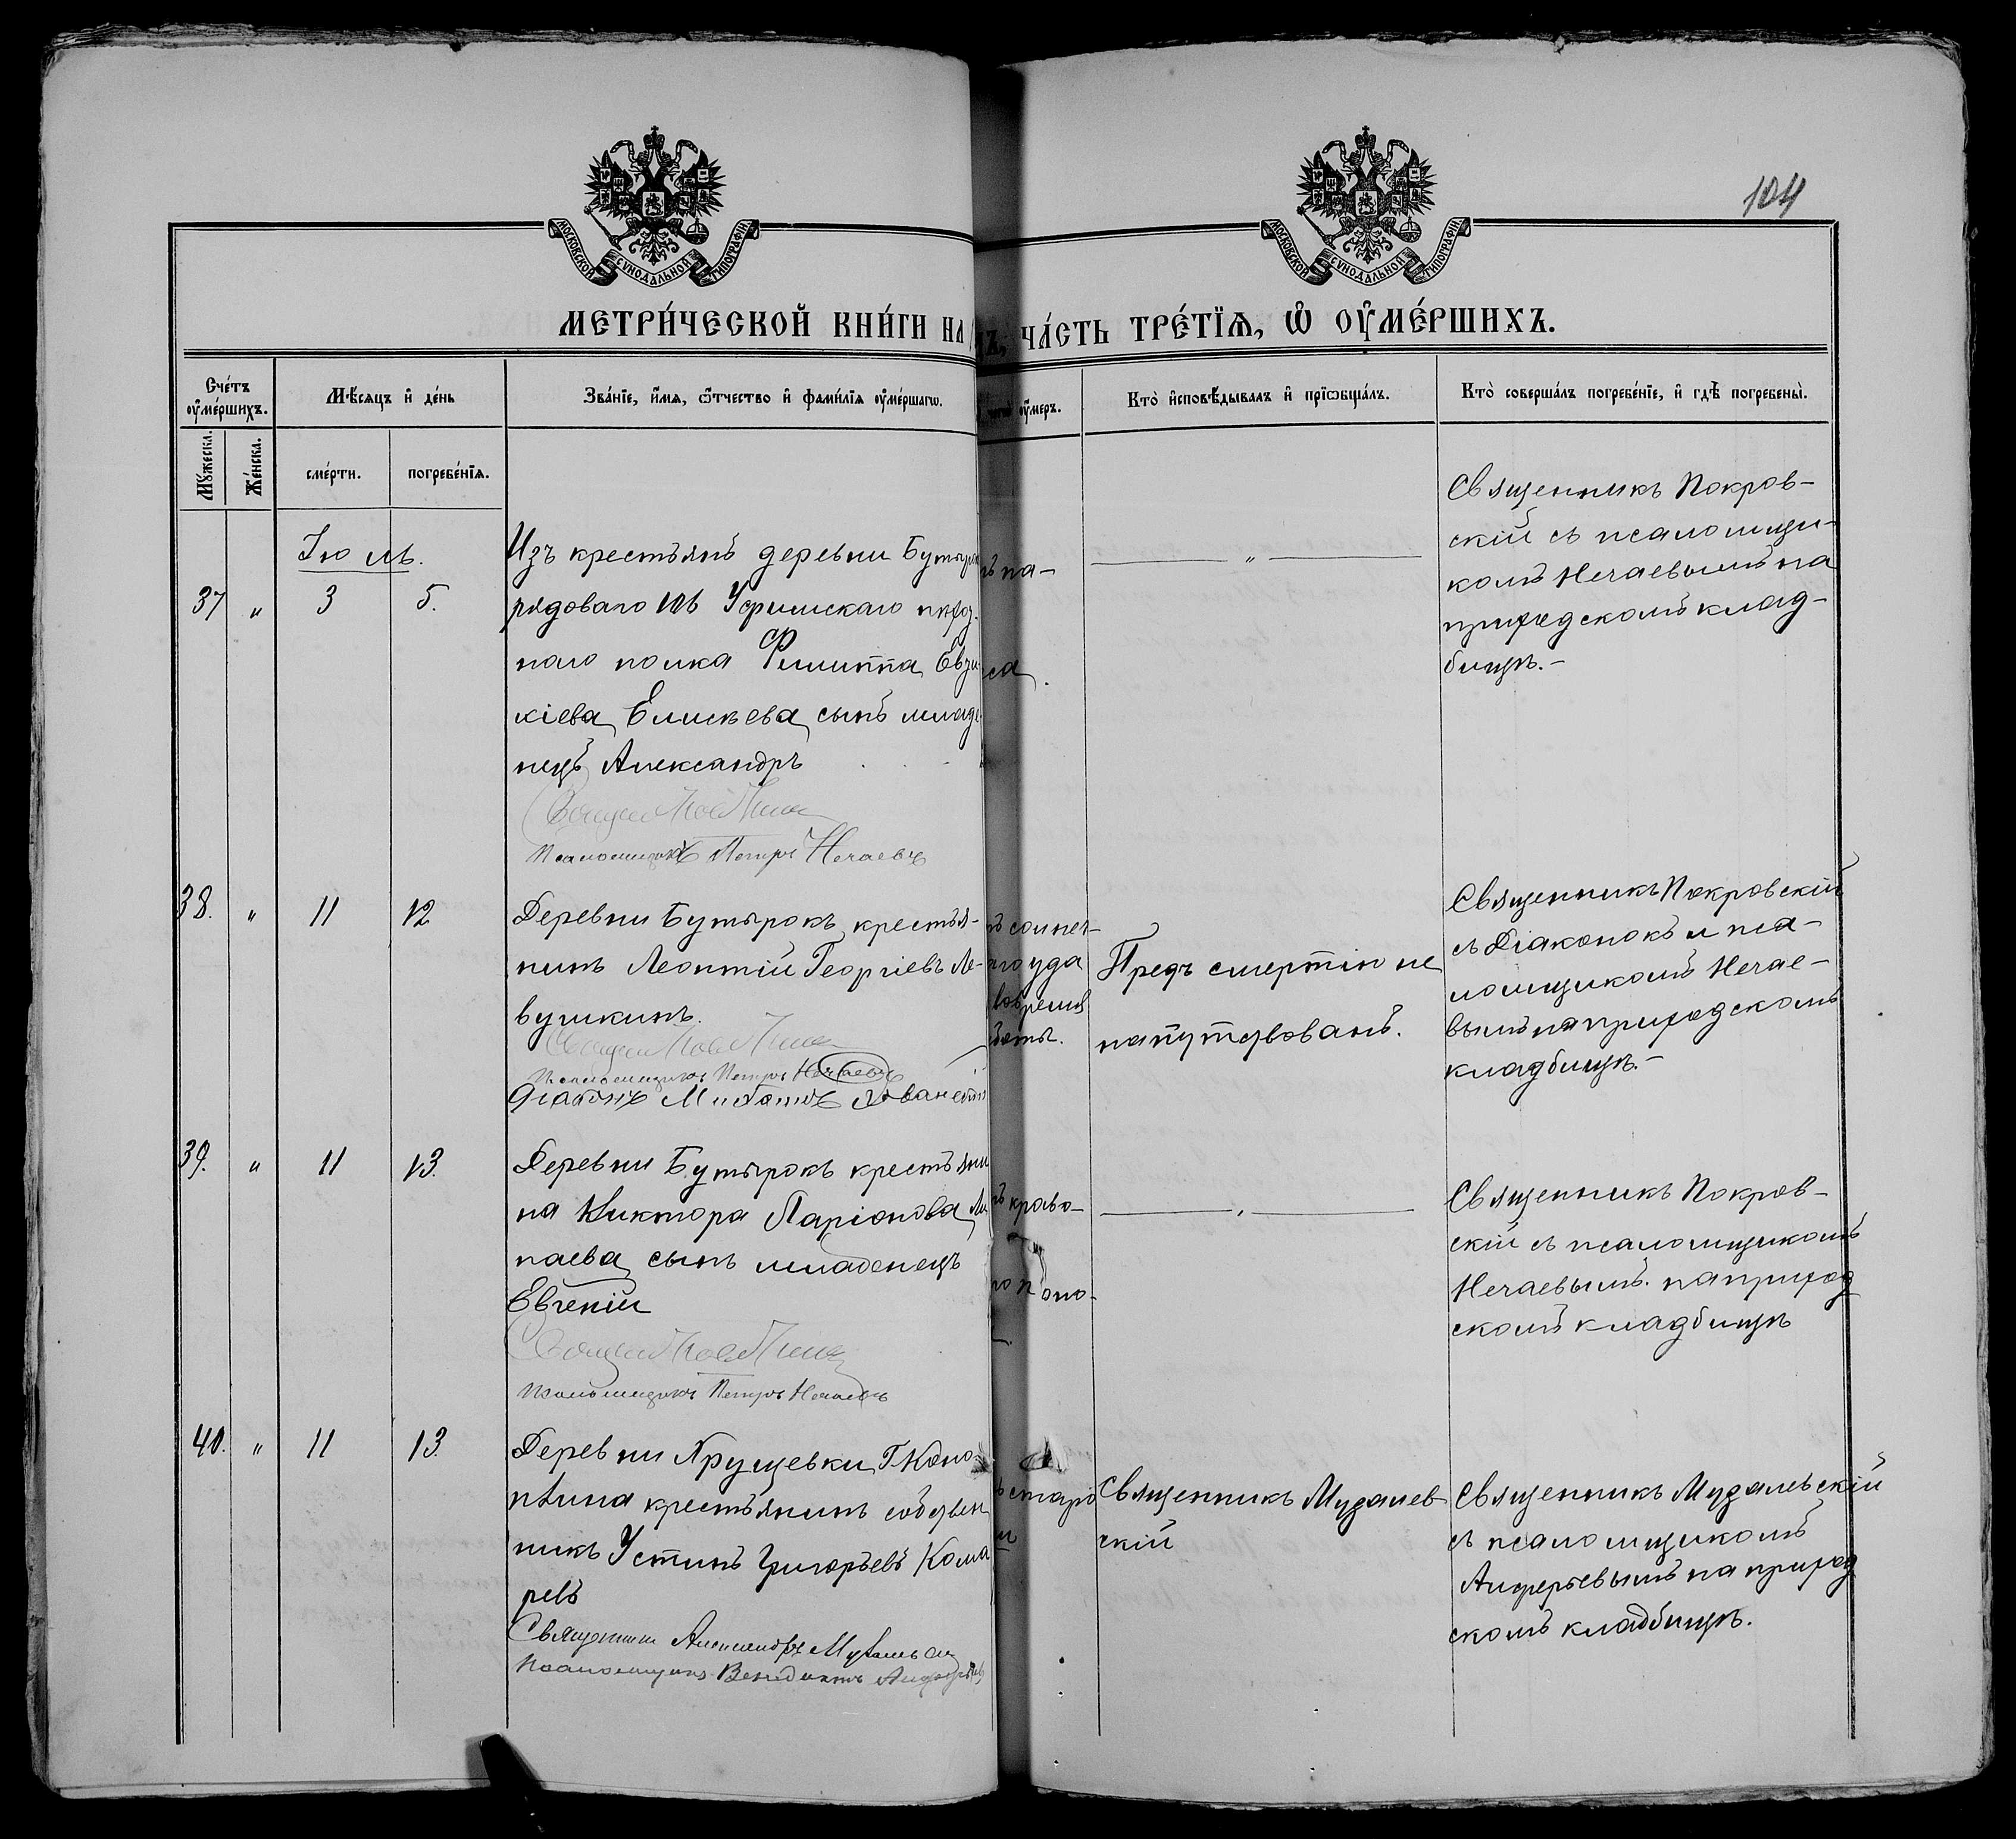 104
МОСКОВСКОЙ СУНОДАЛЬНОЙ ТИПОГРАФІИ.
МОСКОВСКОЙ СУНОДАЛЬНОЙ ТИПОГРАФІИ.
МЕТРИ́ЧЕСКОЙ КНИ́ГИ НА
ЧА́СТЬ ТРЕ́ТЇѦ, Ѡ҆ ОУ҆МЕ́РШИХЪ.
Сче́тъ оу҆ме́ршихъ.
Мѣ́сяцъ и҆ де́нь
Зва́нїе, и҆́мя, ѻ҆́тчество и҆ фами́лїя оу҆ме́ршагѡ.
оу҆́меръ.
Кто̀ и҆сповѣ́дывалъ и҆ прїѡбща́лъ.
Кто̀ соверша́лъ погребе́нїе, и҆ гдѣ̀ погребены̀.
Му́жеска.
Же́нска.
сме́рти.
погребе́нїя.
Іюль.
37 " 3 5.
Изъ крестьянъ деревни Бутыр
рядоваго Уфимскаго
наго полка Филиппа Евзи
кіева Елисѣева сынъ младе
нецъ Александръ
Псаломщикъ Петръ Нечаевъ
на-
са.
"
Священникъ Покров-
скій съ псаломщи-
комъ Нечаевымъ на
приходскомъ клад-
бищѣ.-
38. " 11 12
Деревни Бутырокъ крестья-
нинъ Леонтій Георгіевъ Ле-
вушкинъ.
Псаломщикъ Петръ Нечаевъ
Діаконъ
солнеч-
удა
боты.
Предъ смертію не
напутствованъ.
Священникъ Покровскій
съ Діакономъ и пса-
ломщикомъ Нечае-
вымъ на приходскомъ
кладбищѣ.-
39. " 11 13.
Деревни Бутырокъ крестьяни
на Виктора Ларіонова
паева сынъ младенецъ
Евгеній
Псаломщикъ Петръ Нечаевъ
крово-
поно-
"
Священникъ Покров-
скій съ псаломщикомъ
Нечаевымъ на приход
скомъ кладбищѣ
40. " 11 13.
Деревни Хрущевки
крестьянинъ собствен
никъ Устинъ Григорьевъ Кома
ревъ
Священникъ Александръ
Псаломщикъ Венедиктъ
старо
и
Священникъ Мудалев
скій
Священникъ Мудалевскій
съ псаломщикомъ
Алферьевымъ на приход
скомъ кладбищѣ.